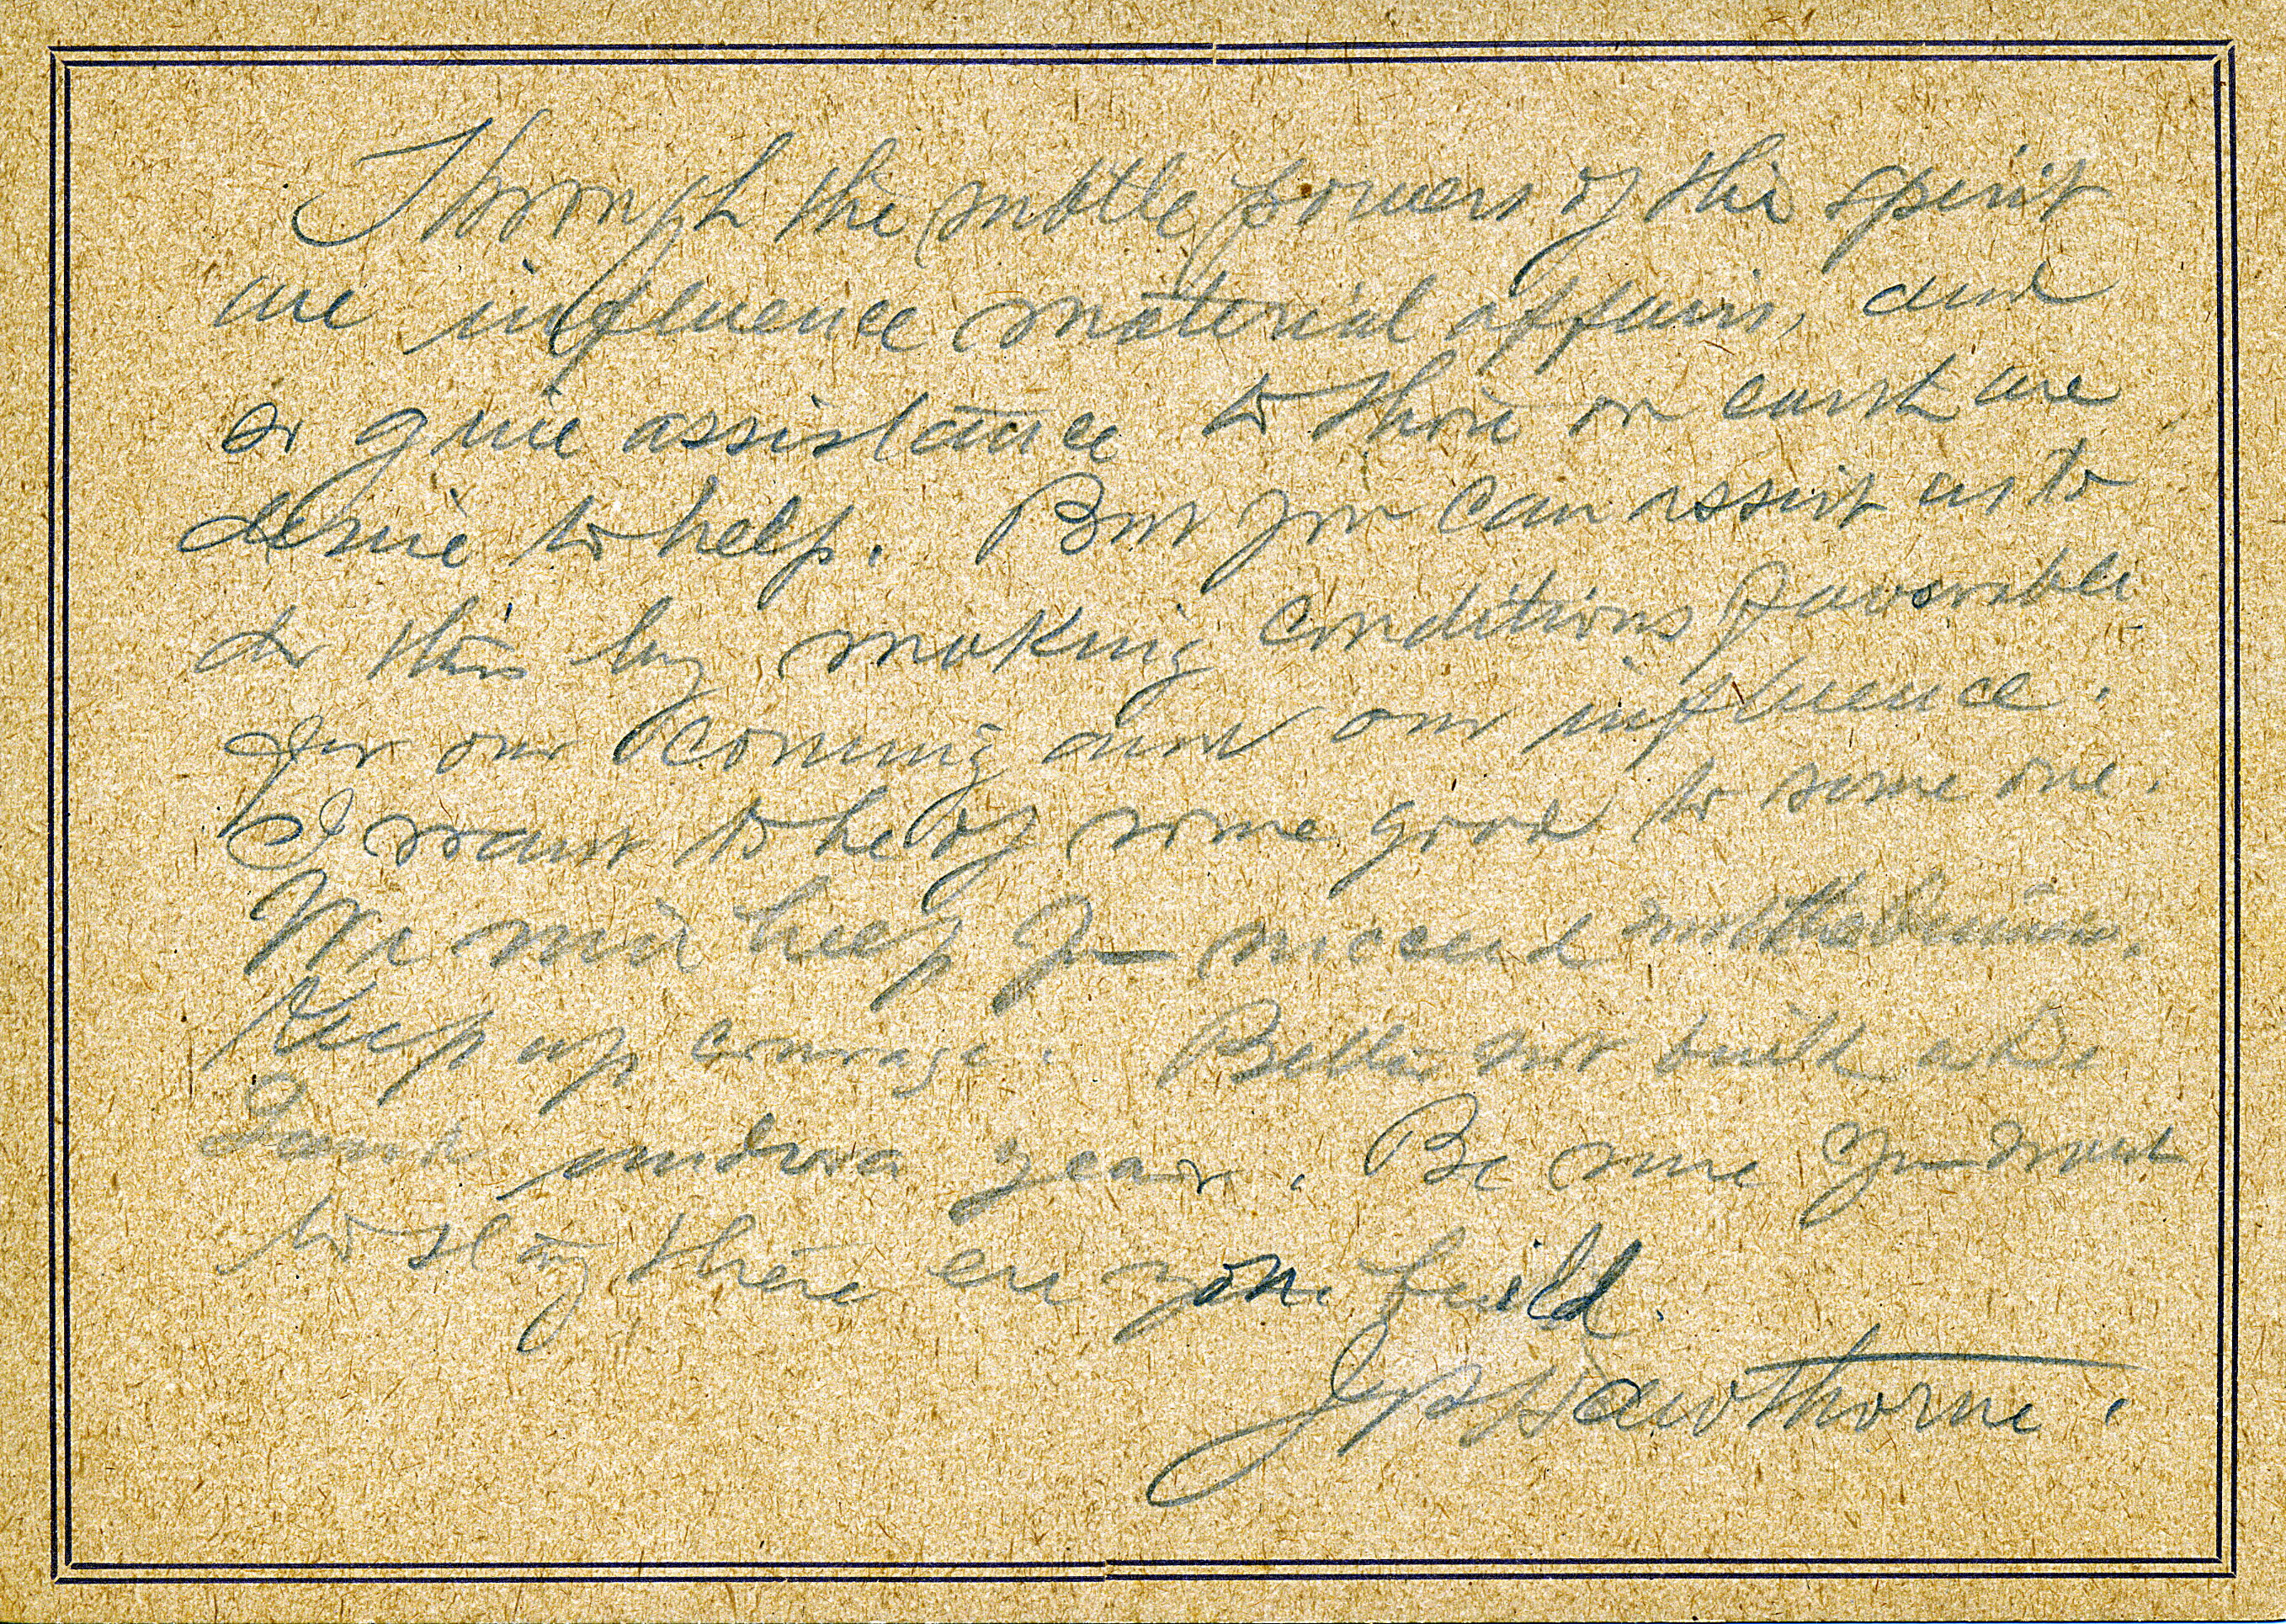 Through the subtle powers of the spirit
we influence material affairs, and
so give assistance to those on earth we
desire to help. But you can assist us to
do this by making conditions favorable
for our coming and our influence.
I want to be of some good to some one.
We will help you succeed
Keep up courage. Better not build
a year. Be sure you want
to stay there ere you build.
Hawthorne.